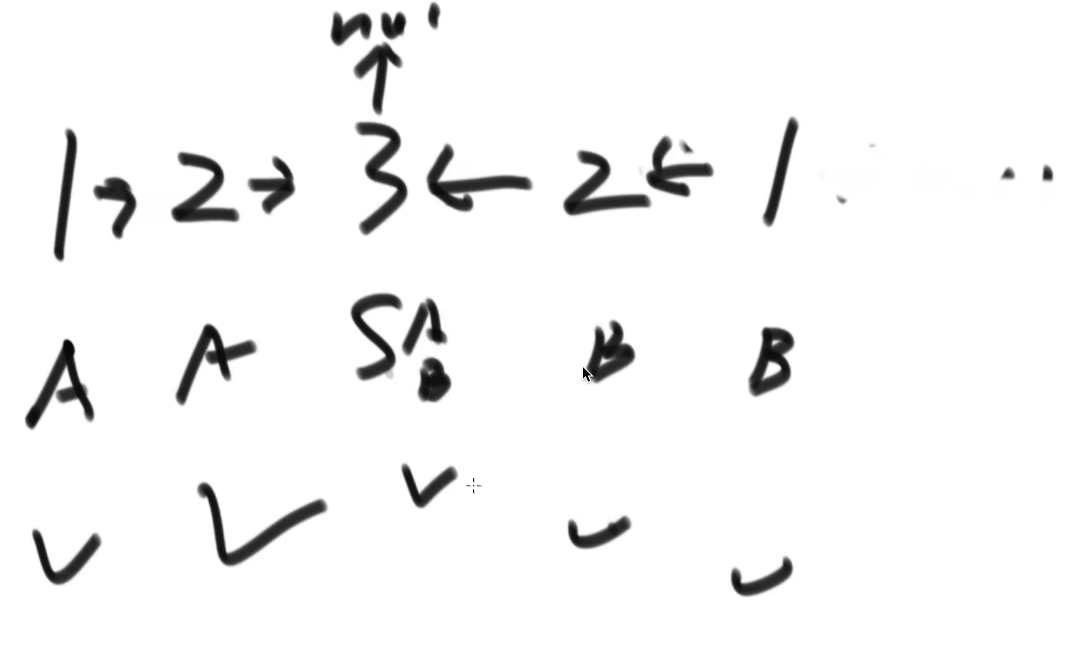 1 → 2 → 3 ← 2 ← 1
A A S A B B
B